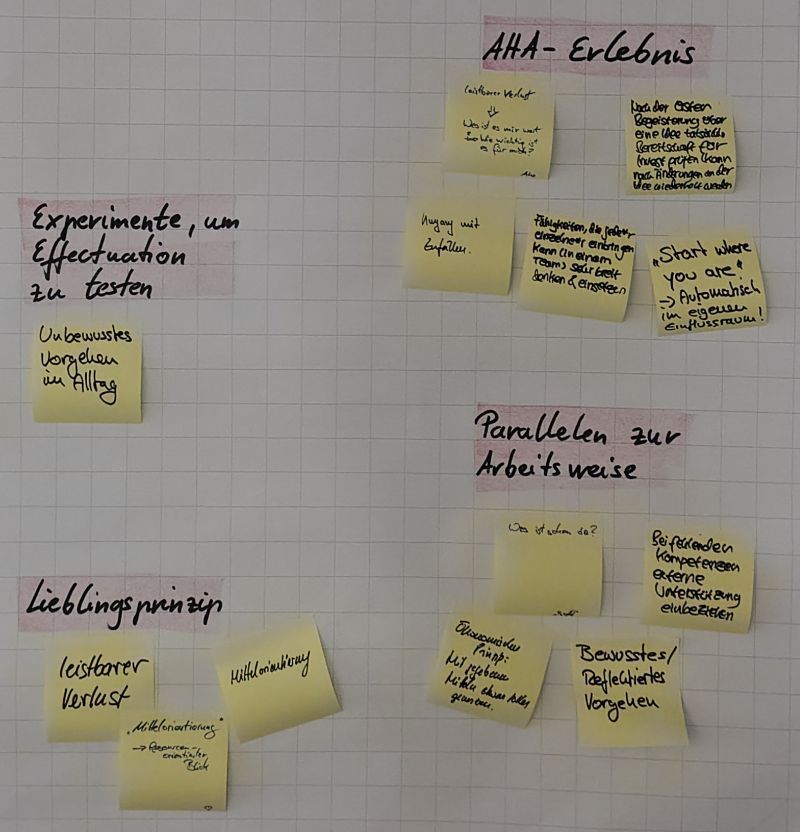 AHA-Erlebnis
leistbarer Verlust
⇓
Was ist es mir wert
wie wichtig ist
es für mich?
Aha
Nach der ersten
Begeisterung über
eine Idee tatsächl.
Bereitschaft für
Invest prüfen (kann
nach Änderungen an der
Idee wiederholt werden
Umgang mit
Zufällen.
Fähigkeiten, die jede/r
einzelne/r einbringen
kann (in einem
Team) sehr breit
denken & einsetzen
„Start where
you are"
→ Automatisch
im eigenen
Einflussraum!
Experimente, um
Effectuation
zu testen
Unbewusstes
Vorgehen
im Alltag
Parallelen zur
Arbeitsweise
Was ist schon da?
Bei fehlenden
Kompetenzen
externe
Unterstützung
einbeziehen
Ökonomisches
Prinzip:
Mit gegebenen
Mitteln etwas tolles
Bewusstes/
Reflektiertes
Vorgehen
Lieblingsprinzip
leistbarer
Verlust
Mittelorientierung
„Mittelorientierung"
→ Ressourcen-
orientierter
Blick